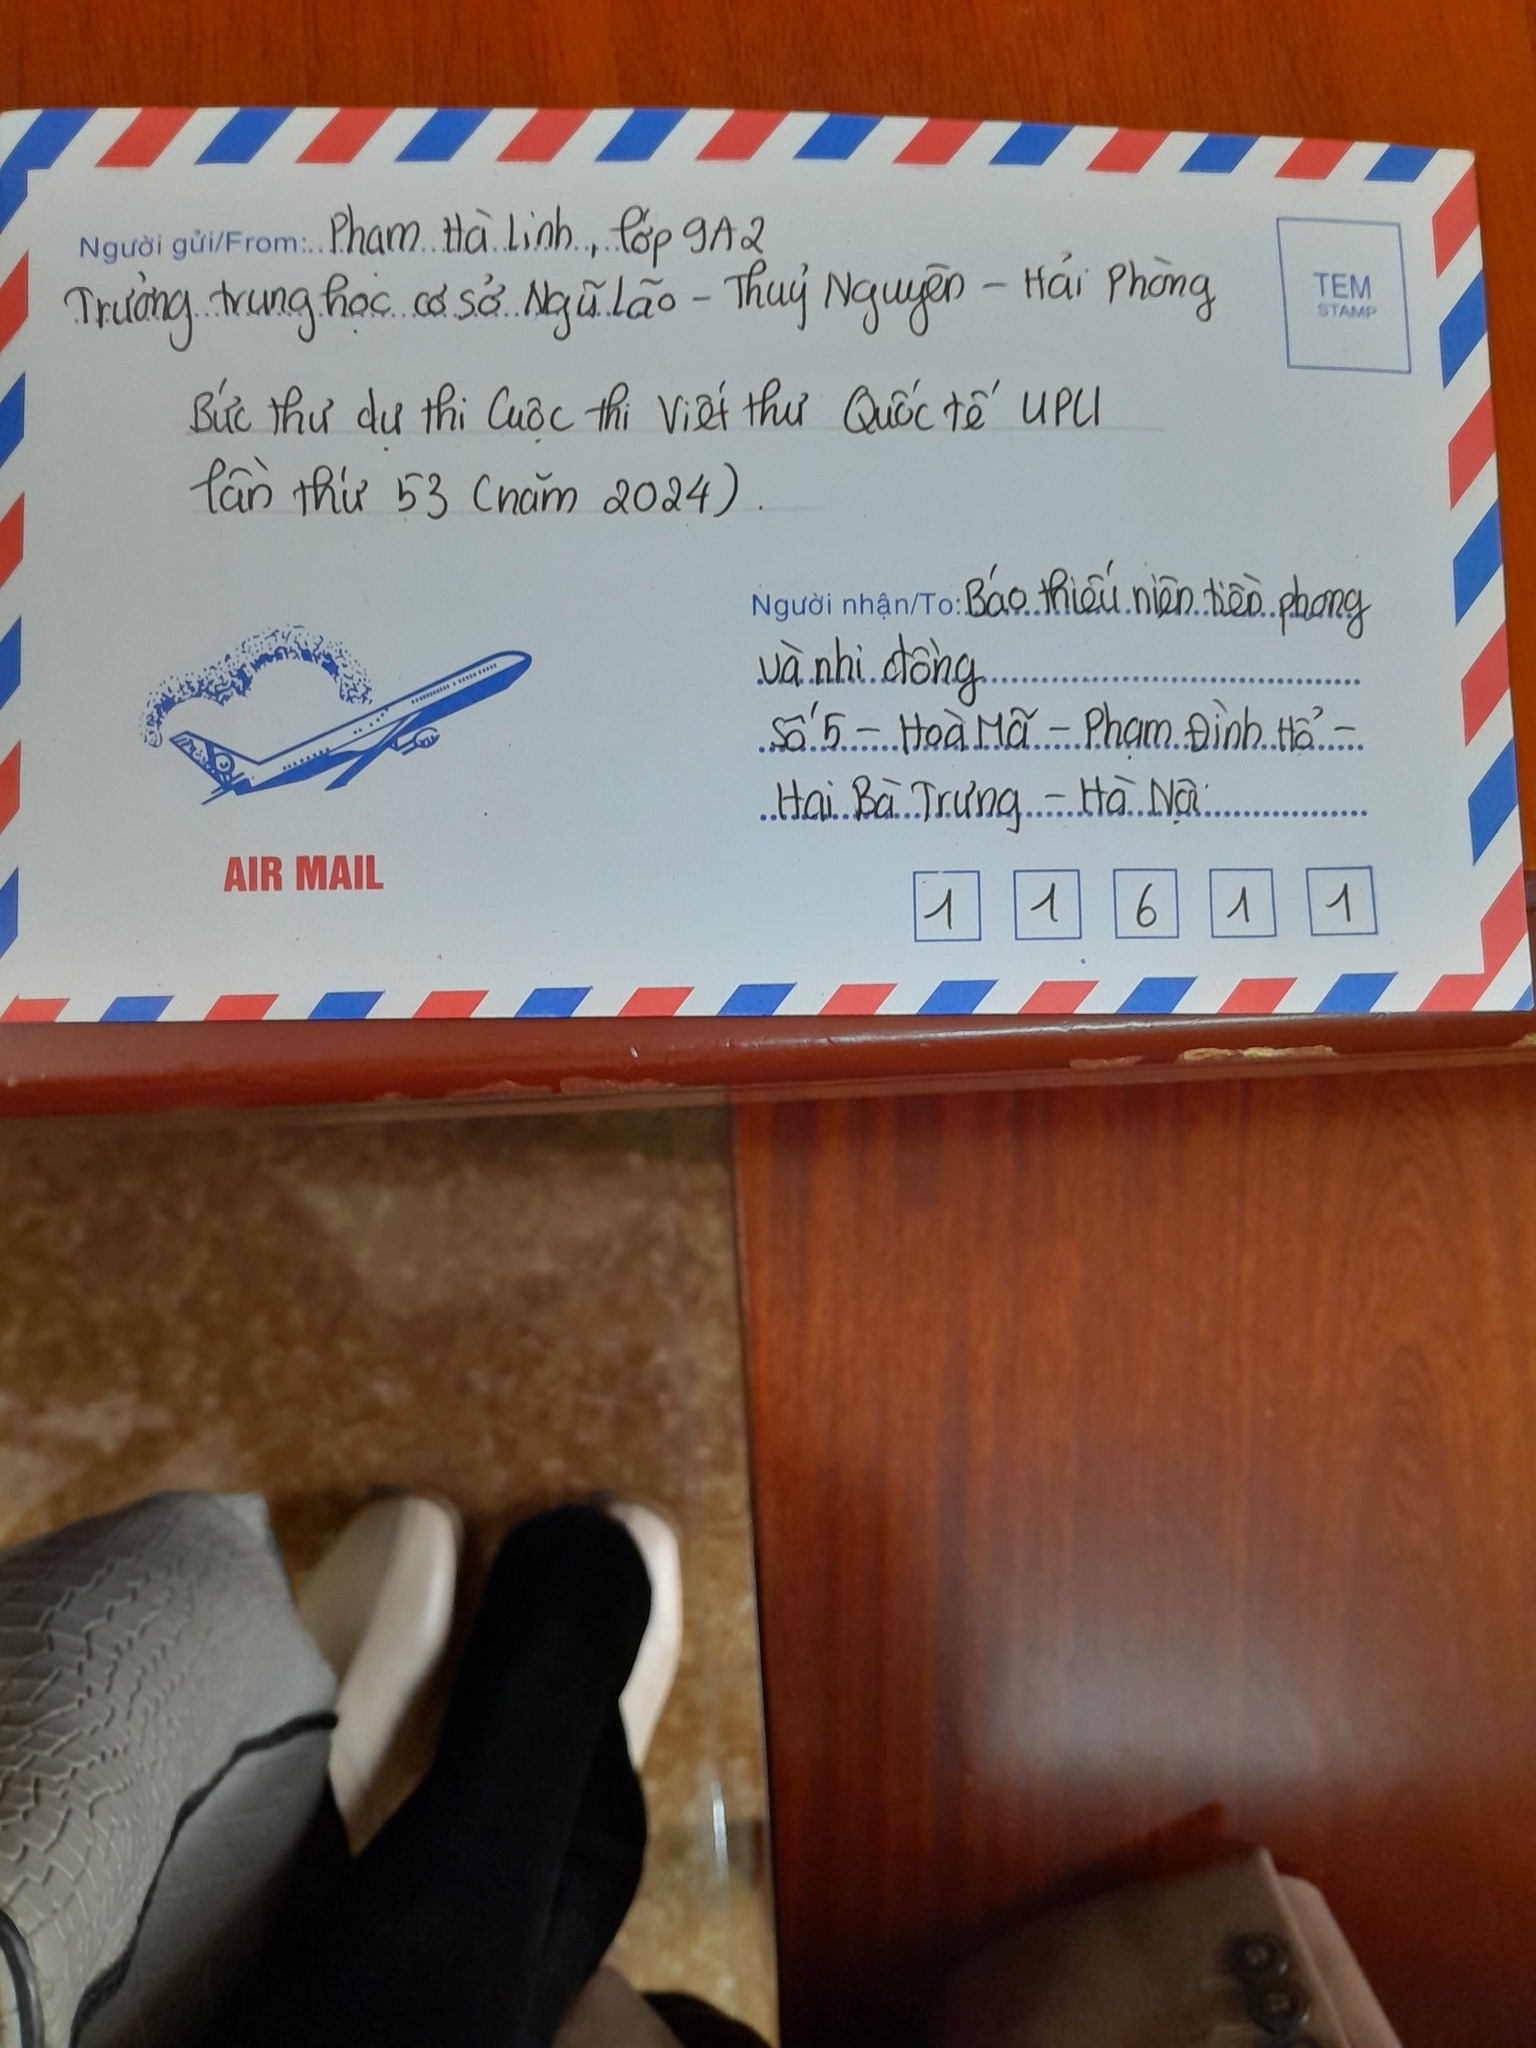 Người gửi/From: Phạm Hà Linh, lớp 9A2
Trường trung học cơ sở Ngũ Lão - Thuỷ Nguyên - Hải Phòng
TEM
STAMP
Bức thư dự thi Cuộc thi Viết thư Quốc tế UPU
lần thứ 53 (năm 2024).
Người nhận/To: Báo thiếu niên tiền phong
và nhi đồng
Số 5 - Hoà Mã - Phạm Đình Hổ -
Hai Bà Trưng - Hà Nội
AIR MAIL
1 1 6 1 1